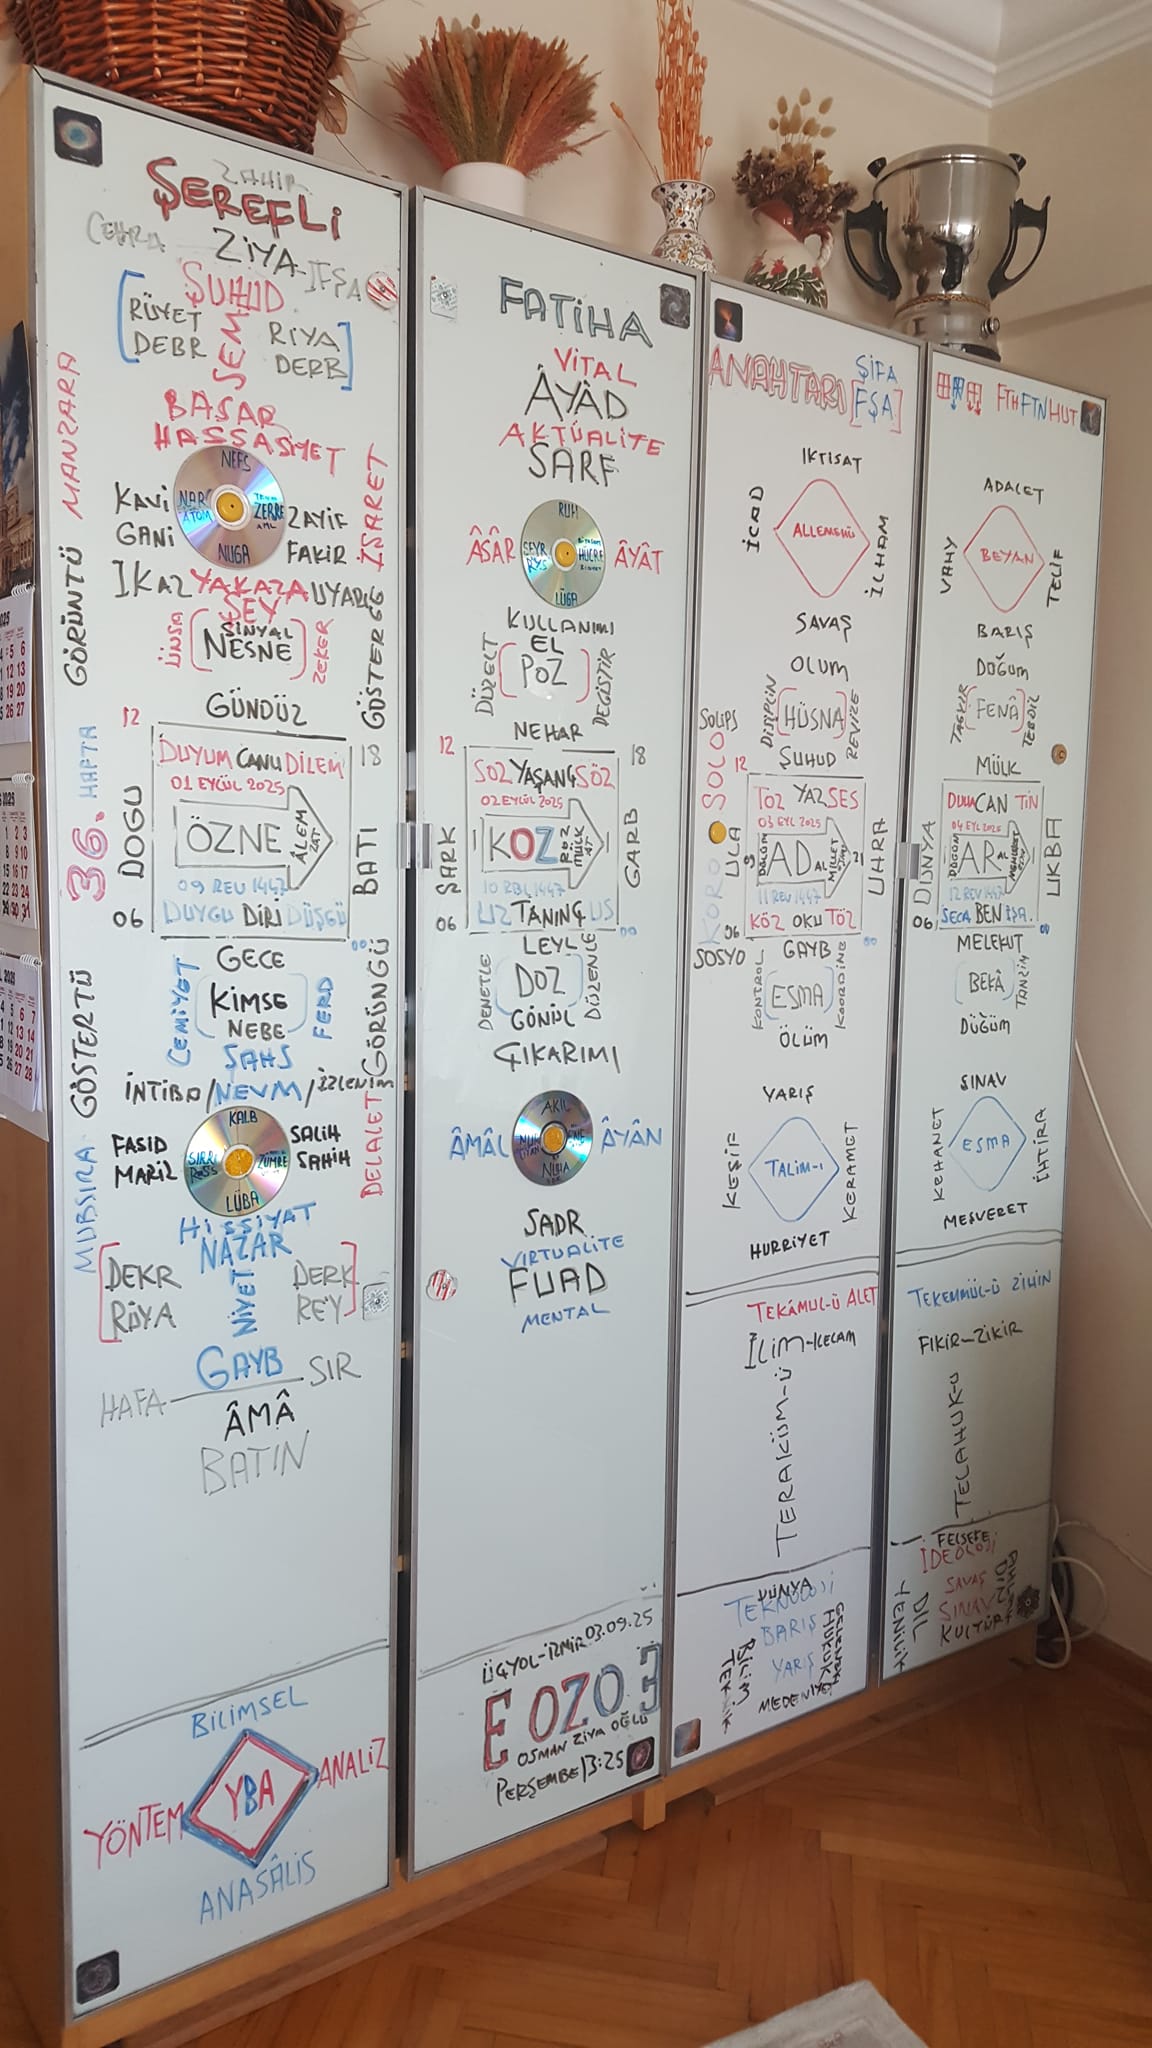 ZAHİR
ŞEREFLİ
ZİYA-İFŞA
ŞUHUD
RÜYET
DEBR
RİYA
DERB
SEM
BASAR
HASSASİYET
MANZARA
İŞARET
NEFS
ATOM
ZERRE
NUGA
KAVİ
GANİ
ZAYIF
FAKİR
İKAZ YAKAZA UYARIŞ
ŞEY
ÜNSA
SİNYAL
NESNE
ZEKER
GÖRÜNTÜ
GÖSTERGE
GÜNDÜZ
36. HAFTA
12
18
DUYUM CANLI DİLEM
01 EYLÜL 2025
DOGU
ÖZNE
ÂLEM
ZAT
BATI
09 REV 1447
DUYGU DİRİ DÜŞGÜ
06
00
GECE
CEMİYET
KİMSE
NEBE
FERD
ŞAHS
GÖSTERTÜ
GÖRÜNGÜ
İNTİBA/NEVM/İZLENİM
KALB
ZÜMRE
LÜBA
FASID
MARİZ
SALİH
SAHİH
DELALET
MUBSIRA
HİSSİYAT
NAZAR
DEKR
RÜYA
NİYET
DERK
REY
GAYB
HAFA
SIR
ÂMÂ
BATIN
BİLİMSEL
YÖNTEM
YBBA
ANALİZ
ANASÂLİS
FATİHA
VİTAL
ÂYÂD
AKTÜALİTE
SARF
RUH
HÜCRE
LÜGA
ÂSÂR
ÂYÂT
KULLANIMI
EL
DÜZELT
POZ
DEĞİŞTİR
NEHAR
12
18
SÖZ YAŞANÇ SÖZ
02 EYLÜL 2025
ŞARK
KOZ
MÜLK
GARB
10 RBL 1447
UZ TANINÇ US
06
00
LEYL
DENETLE
DOZ
DÜZENLE
GÖNÜL
ÇIKARIMI
AKIL
NUHA
ÂMÂL
ÂYÂN
SADR
VİRTUALİTE
FUAD
MENTAL
ÜÇYOL-İZMİR 03.09.25
E OZO 3
OSMAN ZİYA OĞLU
PERŞEMBE 13:25
ANAHTARI
ŞİFA
[FŞA]
İKTİSAT
İCAD
ALLEMEHÜ
İLHAM
SAVAŞ
OLUM
DİSİPLİN
HÜSNA
REVİZE
ŞUHUD
SOLİPS
SOLO
12
TÖZ YAZ SES
03 EYL 2025
ULA
AD
UHRA
11 REV 1447
KÖZ OKU TÖZ
KORO
06
00
SOSYO
GAYB
KONTROL
ESMA
KOORDİNE
ÖLÜM
YARIŞ
KEŞİF
TALİM-I
KERAMET
HURRİYET
TEKÂMUL-Ü ALET
İLİM-KELAM
TERAKÜM-Ü
DÜNYA
TEKNOLOJİ
BARIŞ
YARIŞ
BİLİM
TEKNİK
HUKUK
MEDENİYET
FTHFTNHUT
ADALET
VAHY
BEYAN
TELİF
BARIŞ
DOĞUM
FENÂ
TEBDİL
MÜLK
CAN TİN
04 EYL 2025
DÜNYA
AR
UKBA
12 REV 1447
SECA BEN İŞA
06
00
MELEKUT
BEKÂ
TANZİM
DÜĞÜM
SINAV
KEHANET
ESMA
İHTİRA
MEŞVERET
TEKEMMÜL-Ü ZİHİN
FİKİR-ZİKİR
TELAHUK-U
FELSEFE
İDEOLOJİ
SAVAŞ
SINAV
KÜLTÜR
DİL
YENİLİK
DİN